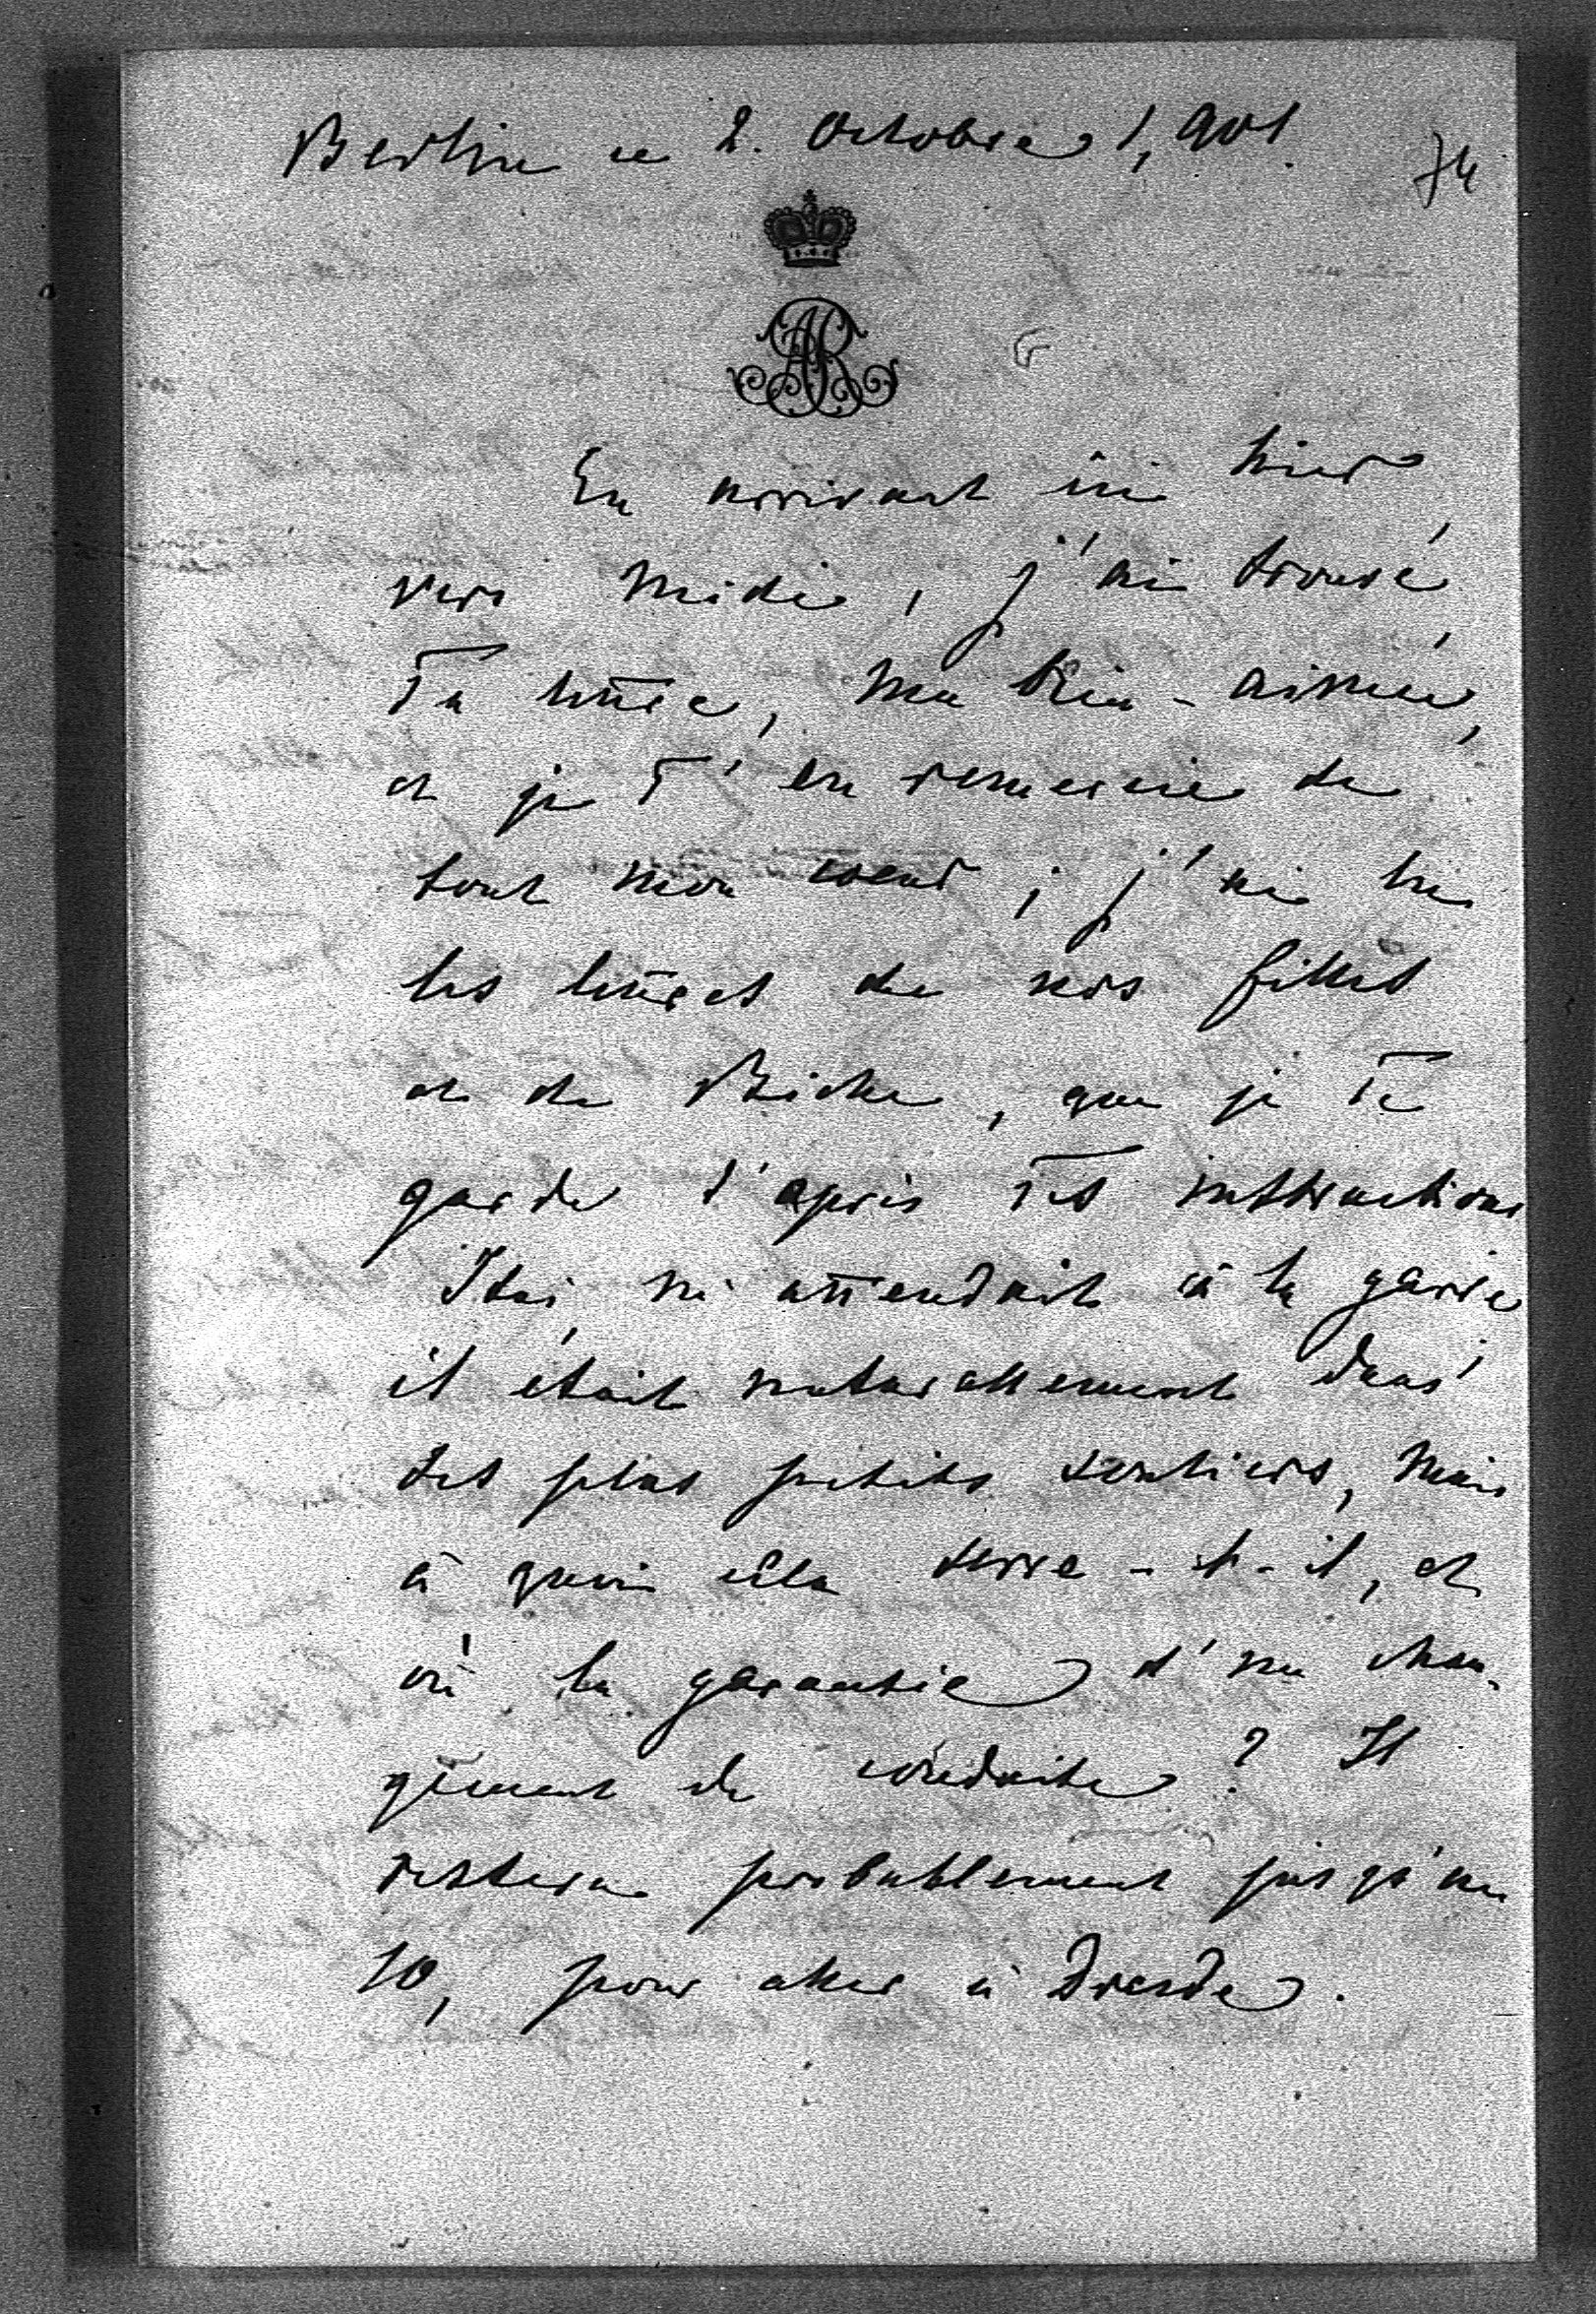 Berlin ce 2. Octobre 1,901.
74
AR
En arrivant ici hier,
vers Midi, j'ai trouvé,
Ta lettre, Ma bien-aimée,
et je T'en remercie de
tout mon coeur ; j'ai lu
les lettres de nos filles
et de Biche, que je Te
garde d'après Tes instructions
m'attendait à la gare,
il était naturellement dans
des plus petits sentiers, Mais
à quoi cela serre-t-il, et
où la garantie d'un chan-
gement de conduite ? Il
restera probablement jusqu'au
10, pour aller à Dresde.